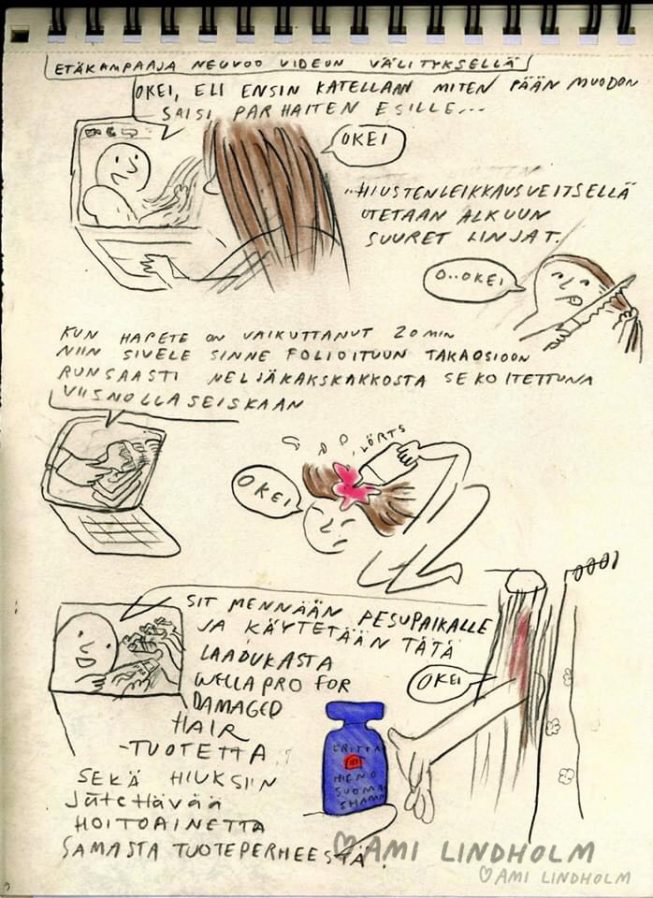 ETÄKAMPAAJA NEUVOO VIDEON VÄLITYKSELLÄ
OKEI, ELI ENSIN KATELLAAN MITEN PÄÄN MUODON
SAISI PARHAITEN ESILLE...
OKEI
..HIUSTENLEIKKAUSVEITSELLÄ
OTETAAN ALKUUN
SUURET LINJAT.
O..OKEI
KUN HAPETE ON VAIKUTTANUT 20 MIN
NIIN SIVELE SINNE FOLIOITUUN TAKAOSIOON
RUNSAASTI NELJÄKAKSKAKKOSTA SEKOITETTUNA
VIISNOLLASEISKAAN
LÖRTS
OKEI
SIT MENNÄÄN PESUPAIKALLE
JA KÄYTETÄÄN TÄTÄ
LAADUKASTA
WELLAPRO FOR
DAMAGED
HAIR
-TUOTETTA
SEKÄ HIUKSIIN
Jätettävää
HOITOAINETTA
SAMASTA TUOTEPERHEESTÄ.
OKEI
ERITTÄ
HIENO
SUOMA
SHAMP
♡AMI LINDHOLM
♡AMI LINDHOLM